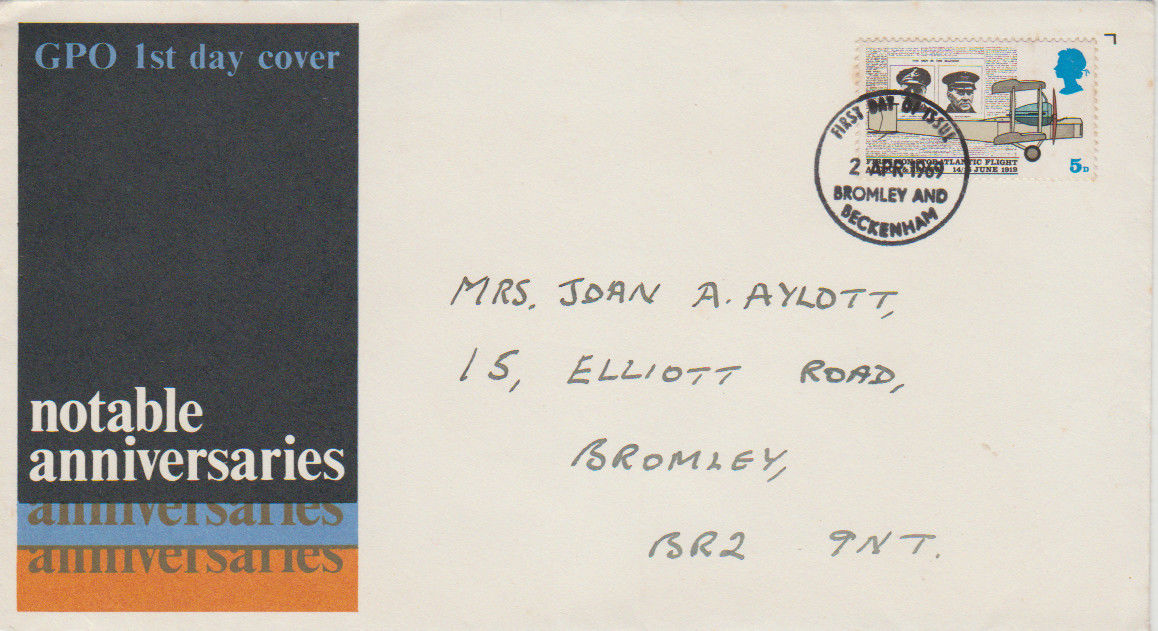 GPO 1st day cover
notable
anniversaries
anniversaries
anniversaries
FIRST DAY OF ISSUE
2 APR 1969
BROMLEY AND
BECKENHAM
ATLANTIC FLIGHT
JUNE 1919
5D
MRS. JOAN A. AYLOTT,
15, ELLIOTT ROAD,
BROMLEY,
BR2 9NT.